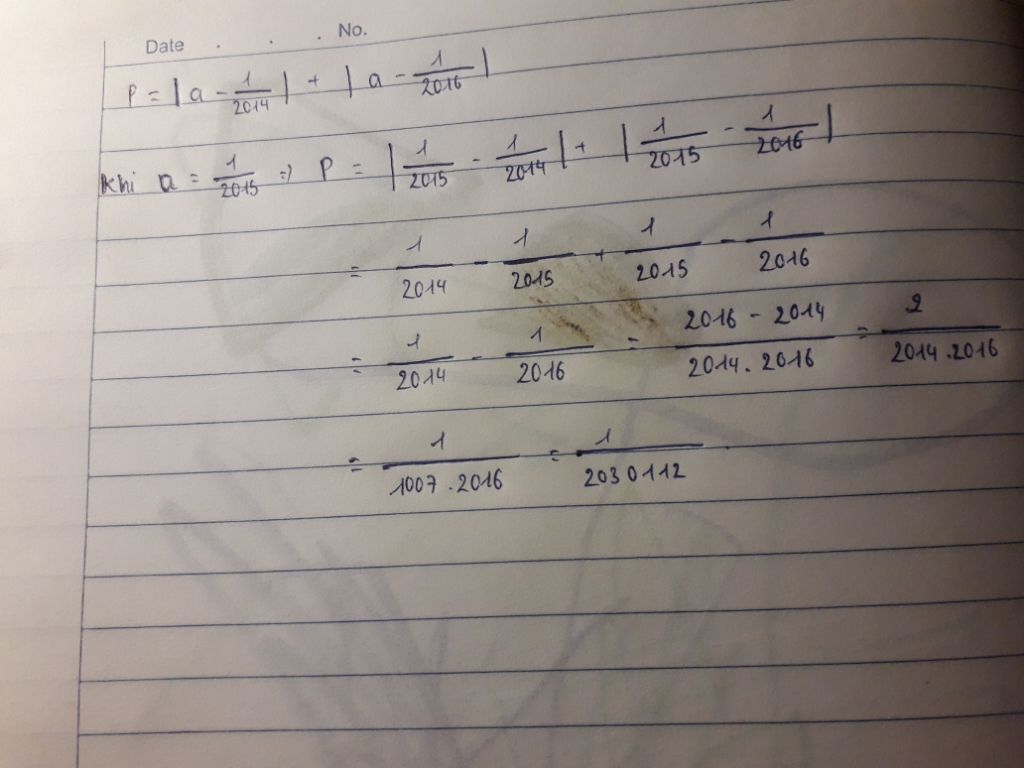 Date . . . No.
P = |a - 1/2014| + |a - 1/2016|
Khi a = 1/2015 => P = |1/2015 - 1/2014| + |1/2015 - 1/2016|
= 1/2014 - 1/2015 + 1/2015 - 1/2016
= 1/2014 - 1/2016 = 2016 - 2014/2014.2016 = 2/2014.2016
= 1/1007.2016 = 1/2030112.